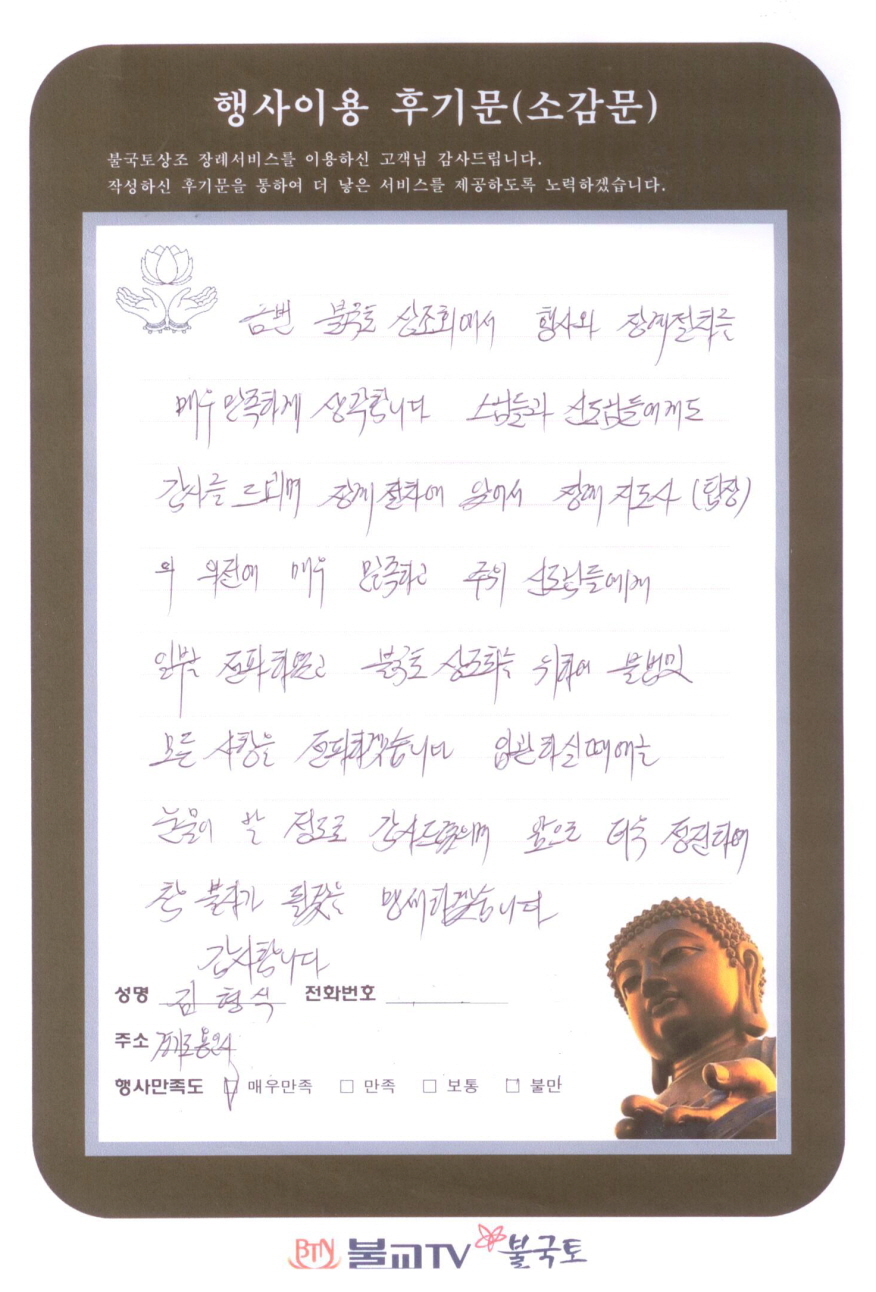 행사이용 후기문(소감문)
불국토상조 장례서비스를 이용하신 고객님 감사드립니다.
작성하신 후기문을 통하여 더 낳은 서비스를 제공하도록 노력하겠습니다.
금번 불국토 상조회에서 행사와 장례절차를
매우 만족하게 생각합니다 스님들과 신도님들에게도
감사를 드리며 장례 절차에 있어서 장례 지도사 (팀장)
의 의전에 매우 만족하고 주위 신도님들에게
전파하겠고 불국토 상조회를 위하여 불법및
모든 사항을 전파하겠습니다 입관하실때에는
눈물이 날 정도로 감사드렸으며 앞으로 더욱 정진하여
참 불자가 될것을 맹세하겠습니다
감사합니다
성명 김형식 전화번호
주소 경기도 용인시
행사만족도 □ 매우만족 □ 만족 □ 보통 □ 불만
BTN 불교TV 불국토